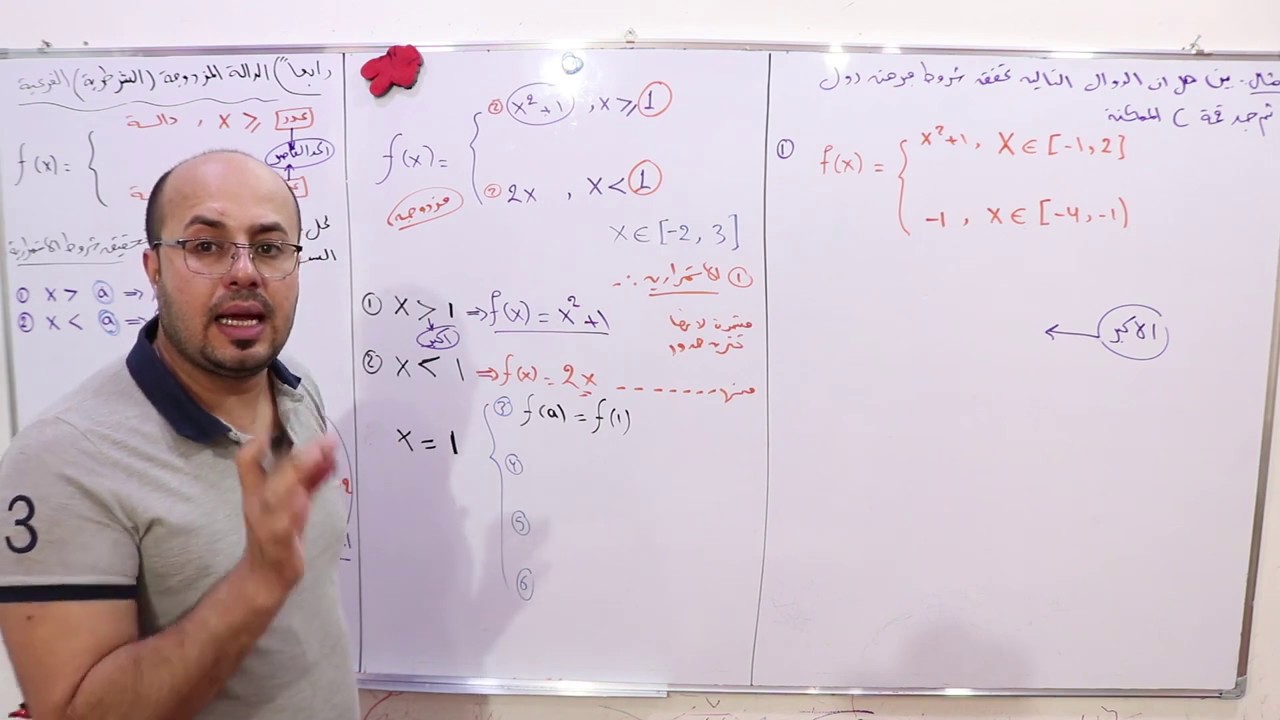 رابعاً) الدالة المزدوجة (الشرطية) الفرعية
f(x) = {
دالـة , x ≥ عدد
الحد الفاصل
تحقيقه شروط الاستمرارية
① x > a ⇒
② x < a ⇒
3
f(x) = { ② x² + 1 , x ≥ 1
② 2x , x < 1
مزدوجه
x ∈ [-2, 3]
① الاستمرارية :.
① x > 1 ⇒ f(x) = x² + 1
اكبر
مستمرة لانها
كثيره حدود
② x < 1 ⇒ f(x) = 2x - - - - - - -
x = 1 { ③ f(a) = f(1)
④
⑤
⑥
مثال - بين هل ان الدوال التاليه تحقق شروط مبرهنه رول
ثم جد قيمة C الممكنة
① f(x) = { x² + 1 , X ∈ [-1, 2]
-1 , X ∈ [-4, -1)
الاكبر